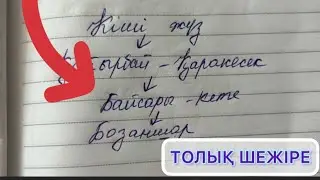 Кіші жүз
- Қаракесек
Байсары - кете
Бозаншар
ТОЛЫҚ ШЕЖІРЕ